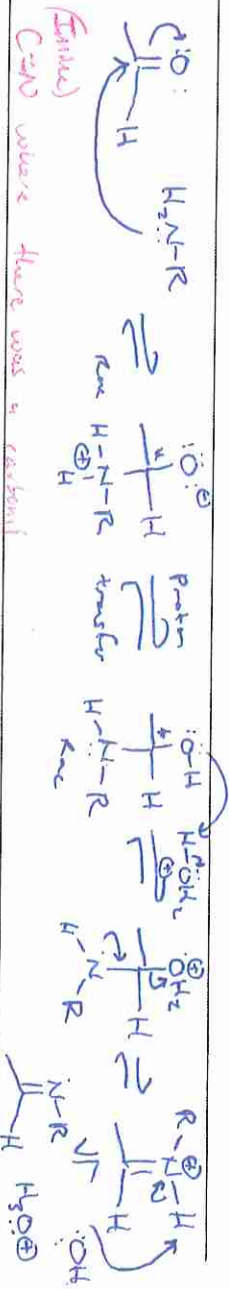 :O:
H
H₂N-R
Rac
:O:⊖
H
H-N-R
⊕ H
Proton
transfer
:O-H
H
H-N-R
Rac
H-OH₂
⊕
⊕
OH₂
H
N-R
H
⊕
R-N-H
H
:OH
N-R
H
H₃O⊕
(Imine)
C=N where there was a carbonyl